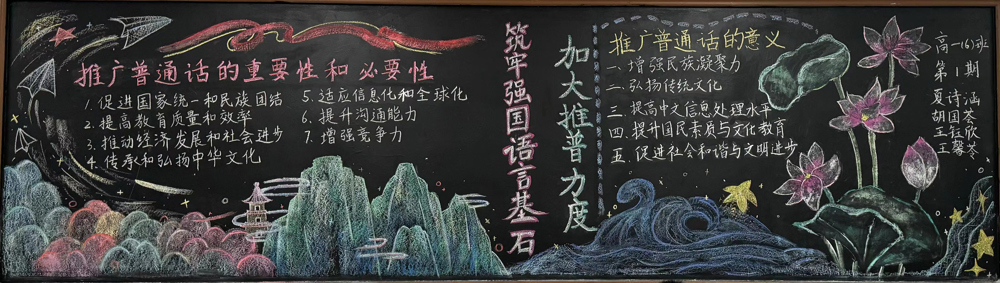 推广普通话的重要性和必要性
1.促进国家统一和民族团结
2.提高教育质量和效率
3.推动经济发展和社会进步
4.传承和弘扬中华文化
5.适应信息化和全球化
6.提升沟通能力
7.增强竞争力
筑牢强国语言基石
加大推普力度
推广普通话的意义
一、增强民族凝聚力
二、弘扬传统文化
三、提高中文信息处理水平
四、提升国民素质与文化教育
五、促进社会和谐与文明进步
高一(6)班
第1期
夏诗涵
胡国荟
王钰欣
王馨苓